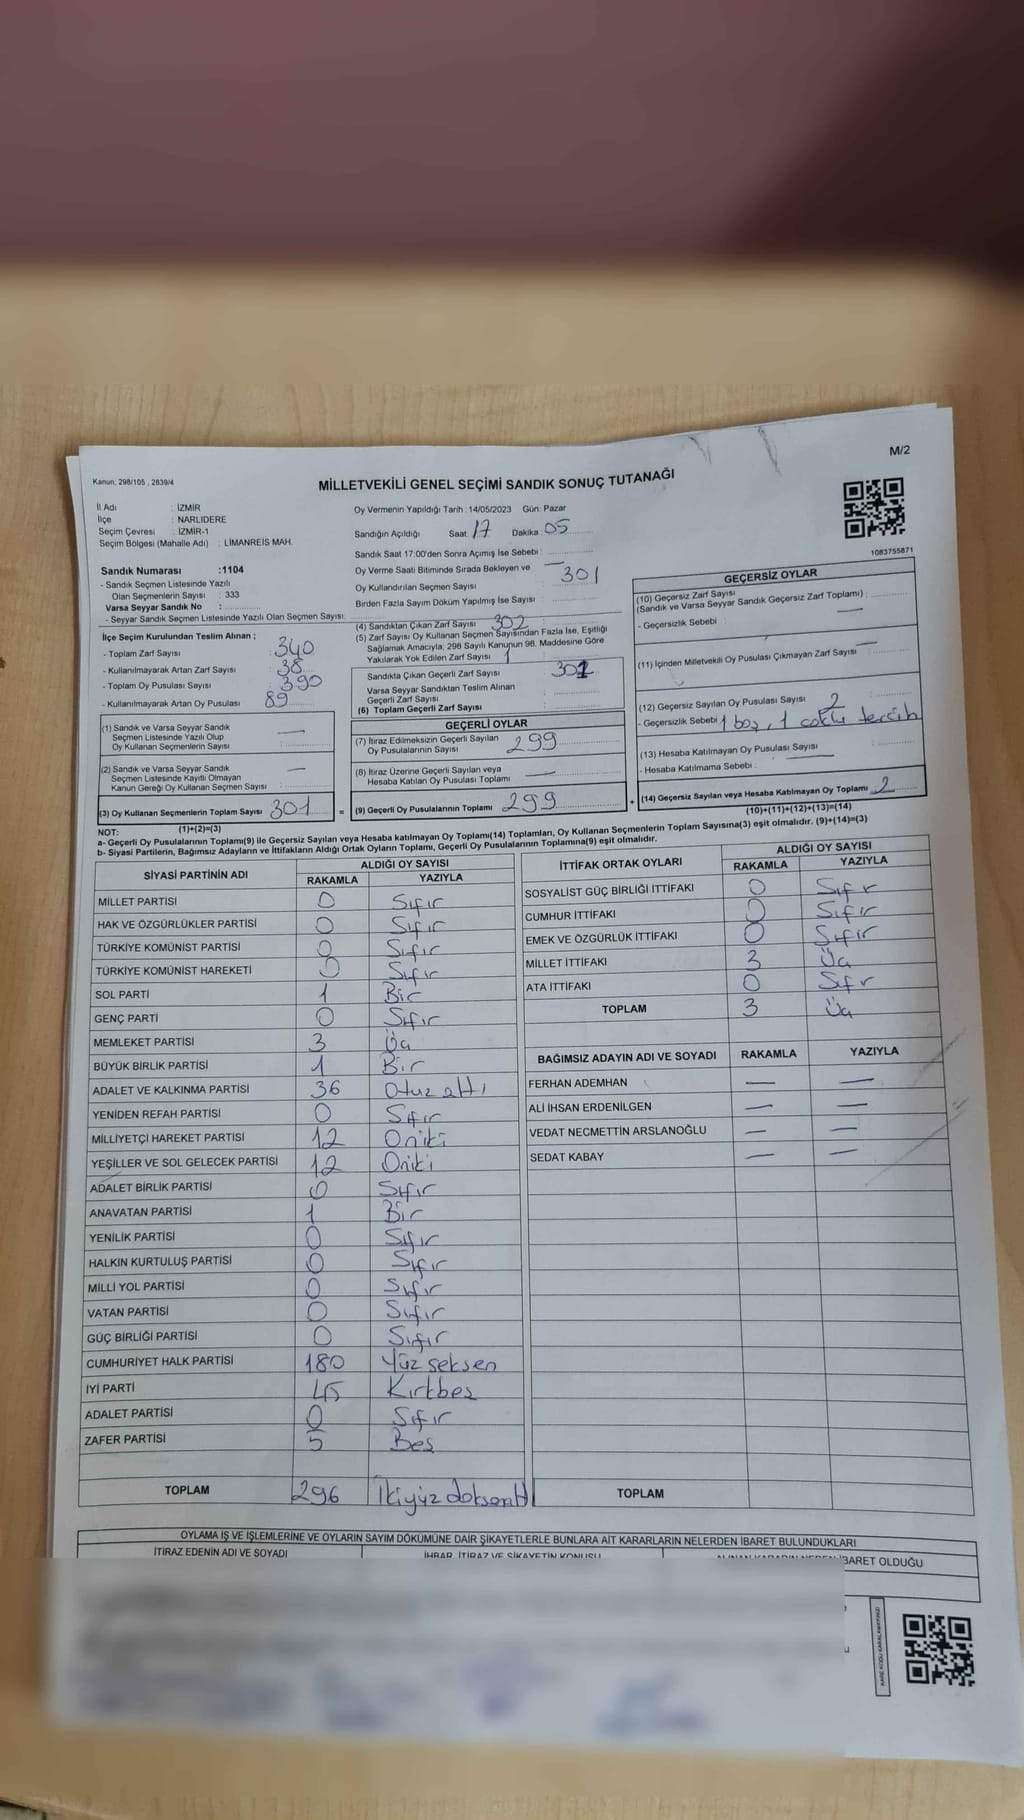 M/2
Kanun, 298/105 , 2839/4
MİLLETVEKİLİ GENEL SEÇİMİ SANDIK SONUÇ TUTANAĞI
İl Adı : İZMİR
İlçe : NARLIDERE
Seçim Çevresi : İZMİR-1
Seçim Bölgesi (Mahalle Adı) : LİMANREİS MAH.
Sandık Numarası :1104
- Sandık Seçmen Listesinde Yazılı
Olan Seçmenlerin Sayısı : 333
Varsa Seyyar Sandık No :
- Seyyar Sandık Seçmen Listesinde Yazılı Olan Seçmen Sayısı:
İlçe Seçim Kurulundan Teslim Alınan ;
- Toplam Zarf Sayısı : 340
- Kullanılmayarak Artan Zarf Sayısı : 38
- Toplam Oy Pusulası Sayısı : 390
- Kullanılmayarak Artan Oy Pusulası : 89
(1) Sandık ve Varsa Seyyar Sandık
Seçmen Listesinde Yazılı Olup
Oy Kullanan Seçmenlerin Sayısı : —
(2) Sandık ve Varsa Seyyar Sandık
Seçmen Listesinde Kayıtlı Olmayan
Kanun Gereği Oy Kullanan Seçmen Sayısı : —
(3) Oy Kullanan Seçmenlerin Toplam Sayısı : 301 =
(1)+(2)=(3)
Oy Vermenin Yapıldığı Tarih : 14/05/2023 Gün: Pazar
Sandığın Açıldığı Saat: 17 Dakika : 05
Sandık Saat 17:00'den Sonra Açımış İse Sebebi :
Oy Verme Saati Bitiminde Sırada Bekleyen ve —
Oy Kullandırılan Seçmen Sayısı : 301
Birden Fazla Sayım Döküm Yapılmış İse Sayısı :
(4) Sandıktan Çıkan Zarf Sayısı : 302
(5) Zarf Sayısı Oy Kullanan Seçmen Sayısından Fazla İse, Eşitliği
Sağlamak Amacıyla; 298 Sayılı Kanunun 98. Maddesine Göre
Yakılarak Yok Edilen Zarf Sayısı : 1
Sandıkta Çıkan Geçerli Zarf Sayısı : 301
Varsa Seyyar Sandıktan Teslim Alınan
Geçerli Zarf Sayısı :
(6) Toplam Geçerli Zarf Sayısı :
GEÇERLİ OYLAR
(7) İtiraz Edilmeksizin Geçerli Sayılan
Oy Pusulalarının Sayısı : 299
(8) İtiraz Üzerine Geçerli Sayılan veya
Hesaba Katılan Oy Pusulası Toplamı : —
(9) Geçerli Oy Pusulalarının Toplamı : 299 +
1083755871
GEÇERSİZ OYLAR
(10) Geçersiz Zarf Sayısı
(Sandık ve Varsa Seyyar Sandık Geçersiz Zarf Toplamı) :
- Geçersizlik Sebebi : —
(11) İçinden Milletvekili Oy Pusulası Çıkmayan Zarf Sayısı : —
(12) Geçersiz Sayılan Oy Pusulası Sayısı : 2
- Geçersizlik Sebebi : 1 boş, 1 çoklu tercih
(13) Hesaba Katılmayan Oy Pusulası Sayısı : —
- Hesaba Katılmama Sebebi :
(14) Geçersiz Sayılan veya Hesaba Katılmayan Oy Toplamı : 2
(10)+(11)+(12)+(13)=(14)
NOT:
a- Geçerli Oy Pusulalarının Toplamı(9) ile Geçersiz Sayılan veya Hesaba katılmayan Oy Toplamı(14) Toplamları, Oy Kullanan Seçmenlerin Toplam Sayısına(3) eşit olmalıdır. (9)+(14)=(3)
b- Siyasi Partilerin, Bağımsız Adayların ve İttifakların Aldığı Ortak Oyların Toplamı, Geçerli Oy Pusulalarının Toplamına(9) eşit olmalıdır.
SİYASİ PARTİNİN ADI ALDIĞI OY SAYISI
RAKAMLA YAZIYLA
MİLLET PARTİSİ 0 Sıfır
HAK VE ÖZGÜRLÜKLER PARTİSİ 0 Sıfır
TÜRKİYE KOMÜNİST PARTİSİ 0 Sıfır
TÜRKİYE KOMÜNİST HAREKETİ 0 Sıfır
SOL PARTİ 1 Bir
GENÇ PARTİ 0 Sıfır
MEMLEKET PARTİSİ 3 Üç
BÜYÜK BİRLİK PARTİSİ 1 Bir
ADALET VE KALKINMA PARTİSİ 36 Otuz altı
YENİDEN REFAH PARTİSİ 0 Sıfır
MİLLİYETÇİ HAREKET PARTİSİ 12 Oniki
YEŞİLLER VE SOL GELECEK PARTİSİ 12 Oniki
ADALET BİRLİK PARTİSİ 0 Sıfır
ANAVATAN PARTİSİ 1 Bir
YENİLİK PARTİSİ 0 Sıfır
HALKIN KURTULUŞ PARTİSİ 0 Sıfır
MİLLİ YOL PARTİSİ 0 Sıfır
VATAN PARTİSİ 0 Sıfır
GÜÇ BİRLİĞİ PARTİSİ 0 Sıfır
CUMHURİYET HALK PARTİSİ 180 Yüz seksen
İYİ PARTİ 45 Kırkbeş
ADALET PARTİSİ 0 Sıfır
ZAFER PARTİSİ 5 Beş
TOPLAM 296 İkiyüz doksanaltı
İTTİFAK ORTAK OYLARI ALDIĞI OY SAYISI
RAKAMLA YAZIYLA
SOSYALİST GÜÇ BİRLİĞİ İTTİFAKI 0 Sıfır
CUMHUR İTTİFAKI 0 Sıfır
EMEK VE ÖZGÜRLÜK İTTİFAKI 0 Sıfır
MİLLET İTTİFAKI 3 Üç
ATA İTTİFAKI 0 Sıfır
TOPLAM 3 Üç
BAĞIMSIZ ADAYIN ADI VE SOYADI RAKAMLA YAZIYLA
FERHAN ADEMHAN — —
ALİ İHSAN ERDENİLGEN — —
VEDAT NECMETTİN ARSLANOĞLU — —
SEDAT KABAY — —
TOPLAM
OYLAMA İŞ VE İŞLEMLERİNE VE OYLARIN SAYIM DÖKÜMÜNE DAİR ŞİKAYETLERLE BUNLARA AİT KARARLARIN NELERDEN İBARET BULUNDUKLARI
İTİRAZ EDENİN ADI VE SOYADI İHBAR, İTİRAZ VE ŞİKAYETİN KONUSU ALINAN KARARIN NEDEN İBARET OLDUĞU